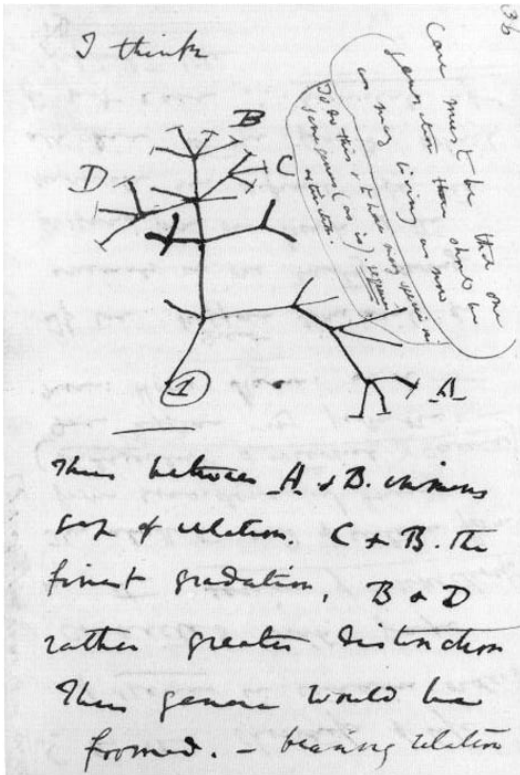 I think
36
Case must be that one
generation then should be
as many living as now
To do this & to have many species in
same genus (as is) requires
extinction.
B
C
D
A
1
Thus between A & B. immens
gap of relation. C & B. the
finest gradation, B & D
rather greater distinction
Thus genera would be
formed. — bearing relation